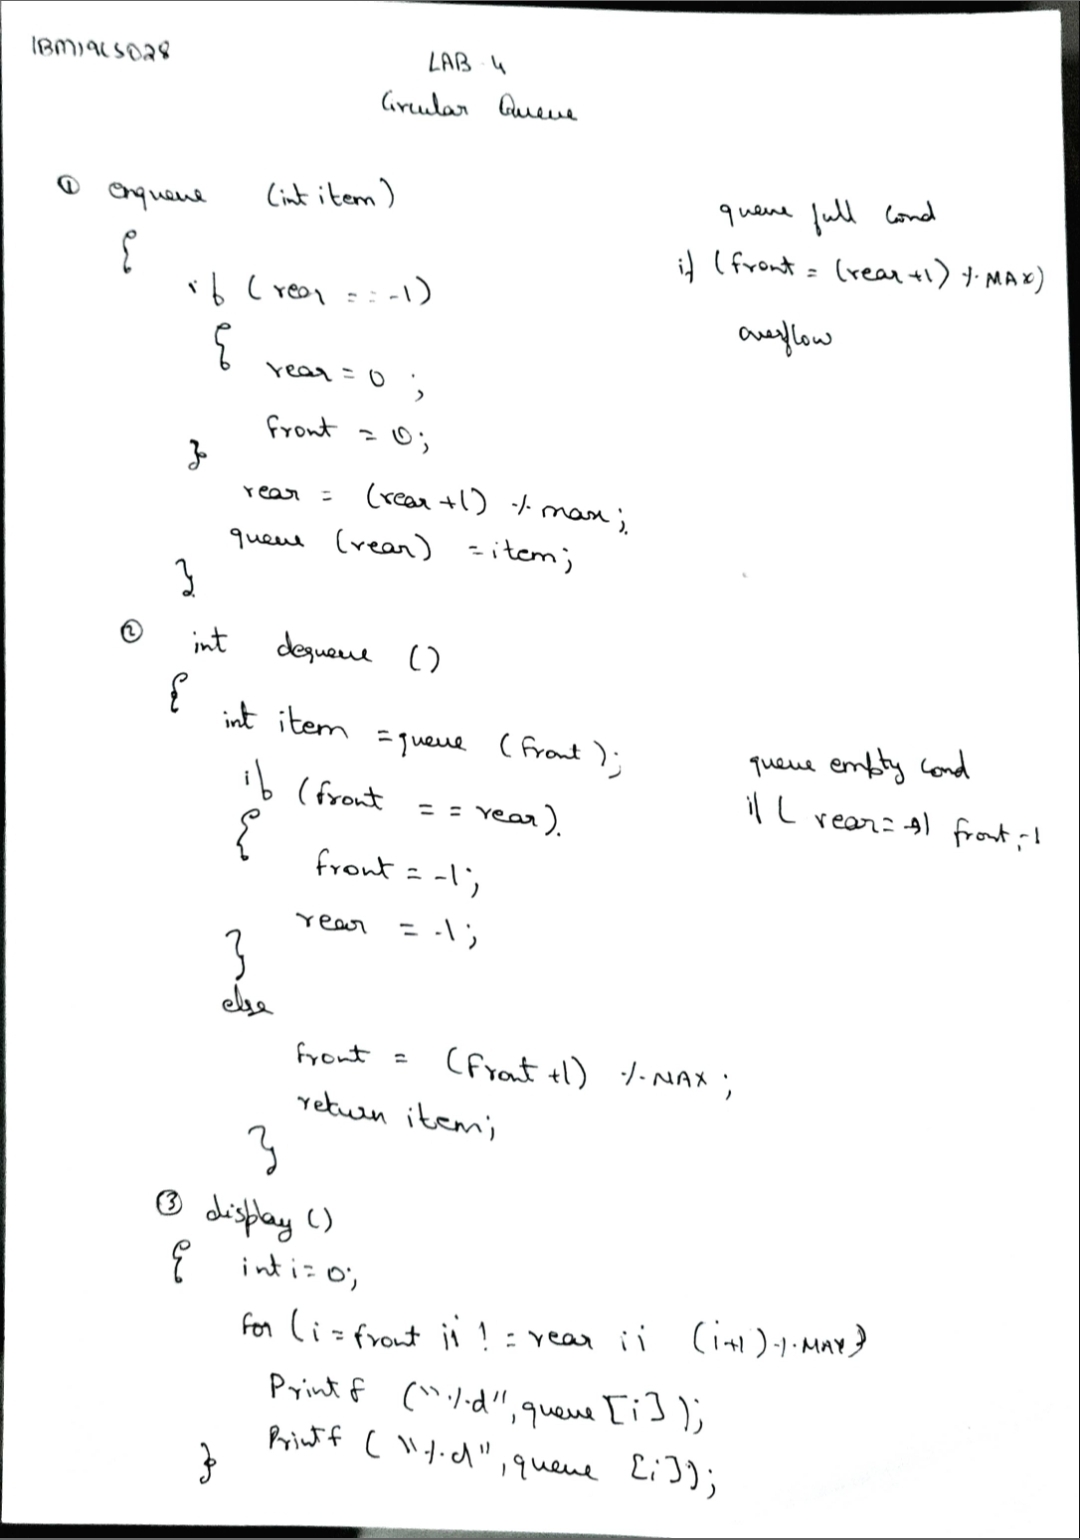 1BM19CS028
LAB-4
Circular Queue
① enqueue (int item)
{
if (rear == -1)
{
rear = 0;
front = 0;
}
rear = (rear +1) % max;
queue (rear) = item;
}
queue full cond
if (front = (rear +1) % MAX)
overflow
② int dequeue ()
{
int item = queue (front);
if (front == rear).
{
front = -1;
rear = -1;
}
else
front = (front +1) % MAX;
return item;
}
queue empty cond
if ( rear = front = -1
③ display ()
{ int i = 0;
for (i = front ; i != rear ; i (i+1) % MAX)
Printf ("%d", queue [i]);
Printf ("%d", queue [i]);
}